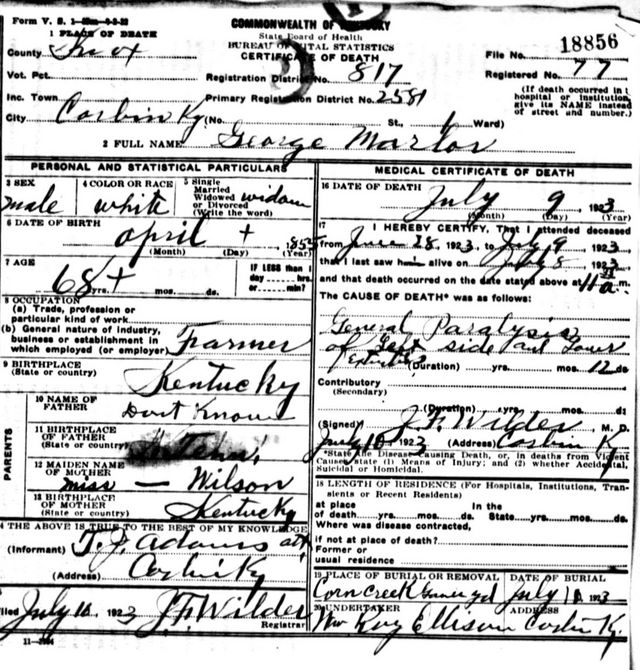 Form V. S.
COMMONWEALTH OF KENTUCKY
State Board of Health
BUREAU OF VITAL STATISTICS
CERTIFICATE OF DEATH
1 PLACE OF DEATH
County Knox
File No. 18856
Vot. Pct.
Registration District No. 817
Registered No. 77
Inc. Town
Primary Registration District No. 2581
(If death occurred in
hospital or institution,
give its NAME instead
of street and number.)
City Corbin Ky (No. St., Ward)
2 FULL NAME George
PERSONAL AND STATISTICAL PARTICULARS
3 SEX
male
4 COLOR OR RACE
white
5 Single
Married
Widowed
or Divorced
(Write the word)
6 DATE OF BIRTH
April + 1855
(Month) (Day) (Year)
7 AGE
68 + yrs. mos. ds.
IF LESS than 1
day hrs.
or min?
8 OCCUPATION
(a) Trade, profession or
particular kind of work
(b) General nature of industry,
business or establishment in
which employed (or employer)
Farmer
9 BIRTHPLACE
(State or country)
Kentucky
PARENTS
10 NAME OF
FATHER
Dont Know
11 BIRTHPLACE
OF FATHER
(State or country)
12 MAIDEN NAME
OF MOTHER
Miss — Wilson
13 BIRTHPLACE
OF MOTHER
(State or country)
Kentucky
4 THE ABOVE IS TRUE TO THE BEST OF MY KNOWLEDGE
(Informant) T. J. Adams
(Address) Corbin Ky
filed July 16 1923 J. F. Wilder
Registrar
MEDICAL CERTIFICATE OF DEATH
16 DATE OF DEATH
July 9 1923
(Month) (Day) (Year)
17 I HEREBY CERTIFY, That I attended deceased
from June 28 1923, to July 9 1923
that I last saw h alive on July 8 1923
and that death occurred on the date stated above at 11 a m.
The CAUSE OF DEATH* was as follows:
General Paralysis
of left side and lower
(Duration) yrs. mos. 12 ds.
Contributory
(Secondary)
(Duration) yrs. mos. ds
(Signed) J. F. Wilder M. D.
July 10 1923 (Address) Corbin K
*State the Disease Causing Death, or, in deaths from Violent
Causes state (1) Means of Injury; and (2) whether Accidental,
Suicidal or Homicidal.
18 LENGTH OF RESIDENCE (For Hospitals, Institutions, Tran-
sients or Recent Residents)
at place In the
of death yrs. mos. ds. State yrs. mos. ds.
Where was disease contracted,
if not at place of death?
Former or
usual residence
19 PLACE OF BURIAL OR REMOVAL
Corn Creek
DATE OF BURIAL
July 10 1923
20 UNDERTAKER
Kay Ellison
ADDRESS
Corbin Ky.